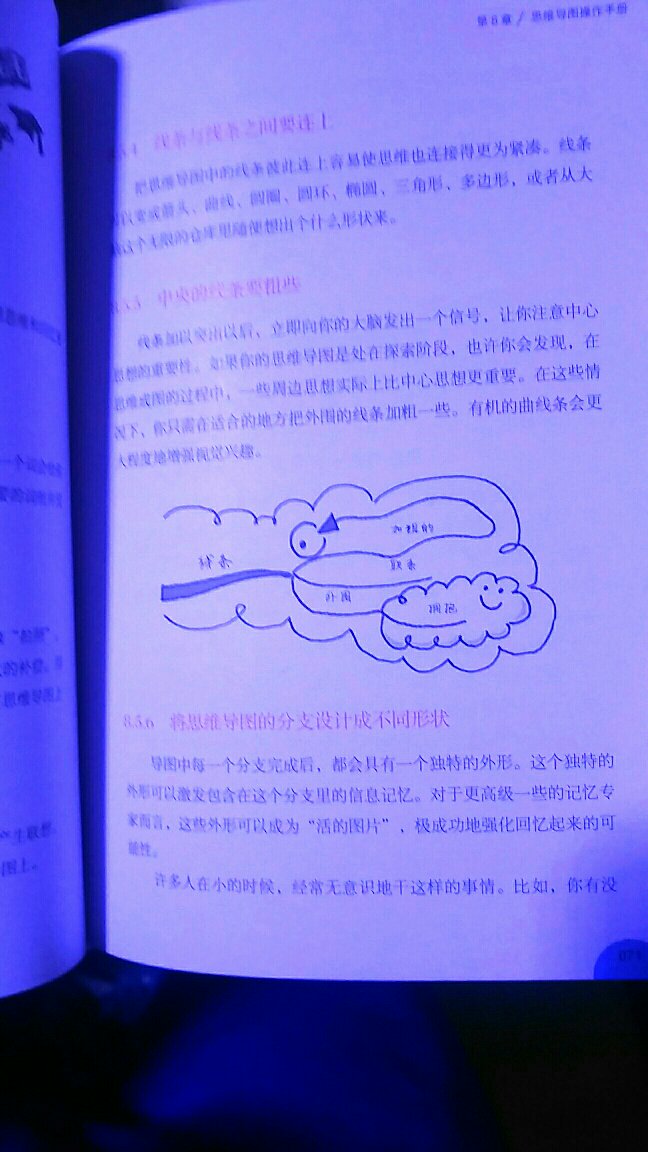 第8章 / 思维导图操作手册
线条与线条之间要连上
把思维导图中的线条彼此连上容易使思维也连接得更为紧凑。线条
可以变成箭头、曲线、圆圈、圆环、椭圆、三角形、多边形，或者从大
这个无限的仓库里随便想出个什么形状来。
8.5.5 中央的线条要粗些
线条加以突出以后，立即向你的大脑发出一个信号，让你注意中心
思想的重要性。如果你的思维导图是处在探索阶段，也许你会发现，在
思维或图的过程中，一些周边思想实际上比中心思想更重要。在这些情
况下，你只需在适合的地方把外围的线条加粗一些。有机的曲线条会更
大程度地增强视觉兴趣。
加粗的
线条
联系
外围
拥抱
8.5.6 将思维导图的分支设计成不同形状
导图中每一个分支完成后，都会具有一个独特的外形。这个独特的
外形可以激发包含在这个分支里的信息记忆。对于更高级一些的记忆专
家而言，这些外形可以成为“活的图片”，极成功地强化回忆起来的可
能性。
许多人在小的时候，经常无意识地干这样的事情。比如，你有没
071
一个
的补偿。
思维导图上
生联想。
图上。